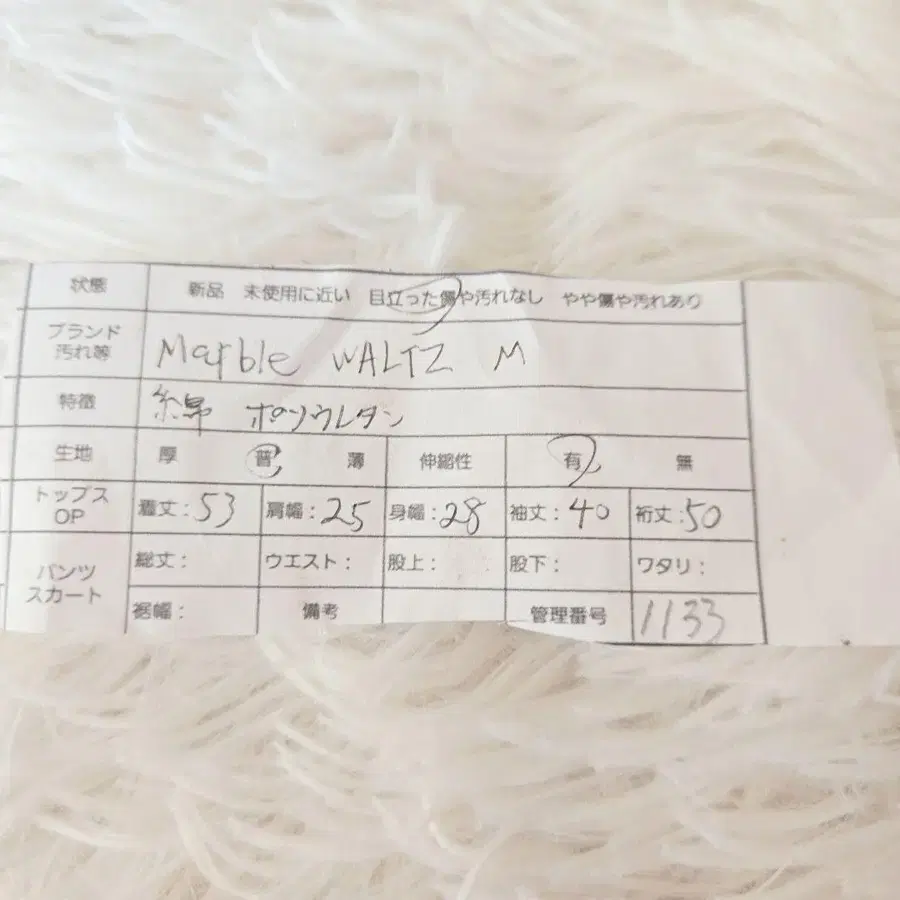 状態 新品 未使用に近い 目立った傷や汚れなし やや傷や汚れあり
ブランド
汚れ等 Marble WALTZ M
特徴 綿 ポリウレタン
生地 厚 普 薄 伸縮性 有 無
トップス
OP 着丈:53 肩幅:25 身幅:28 袖丈:40 裄丈:50
パンツ
スカート 総丈: ウエスト: 股上: 股下: ワタリ:
裾幅: 備考 管理番号 1133